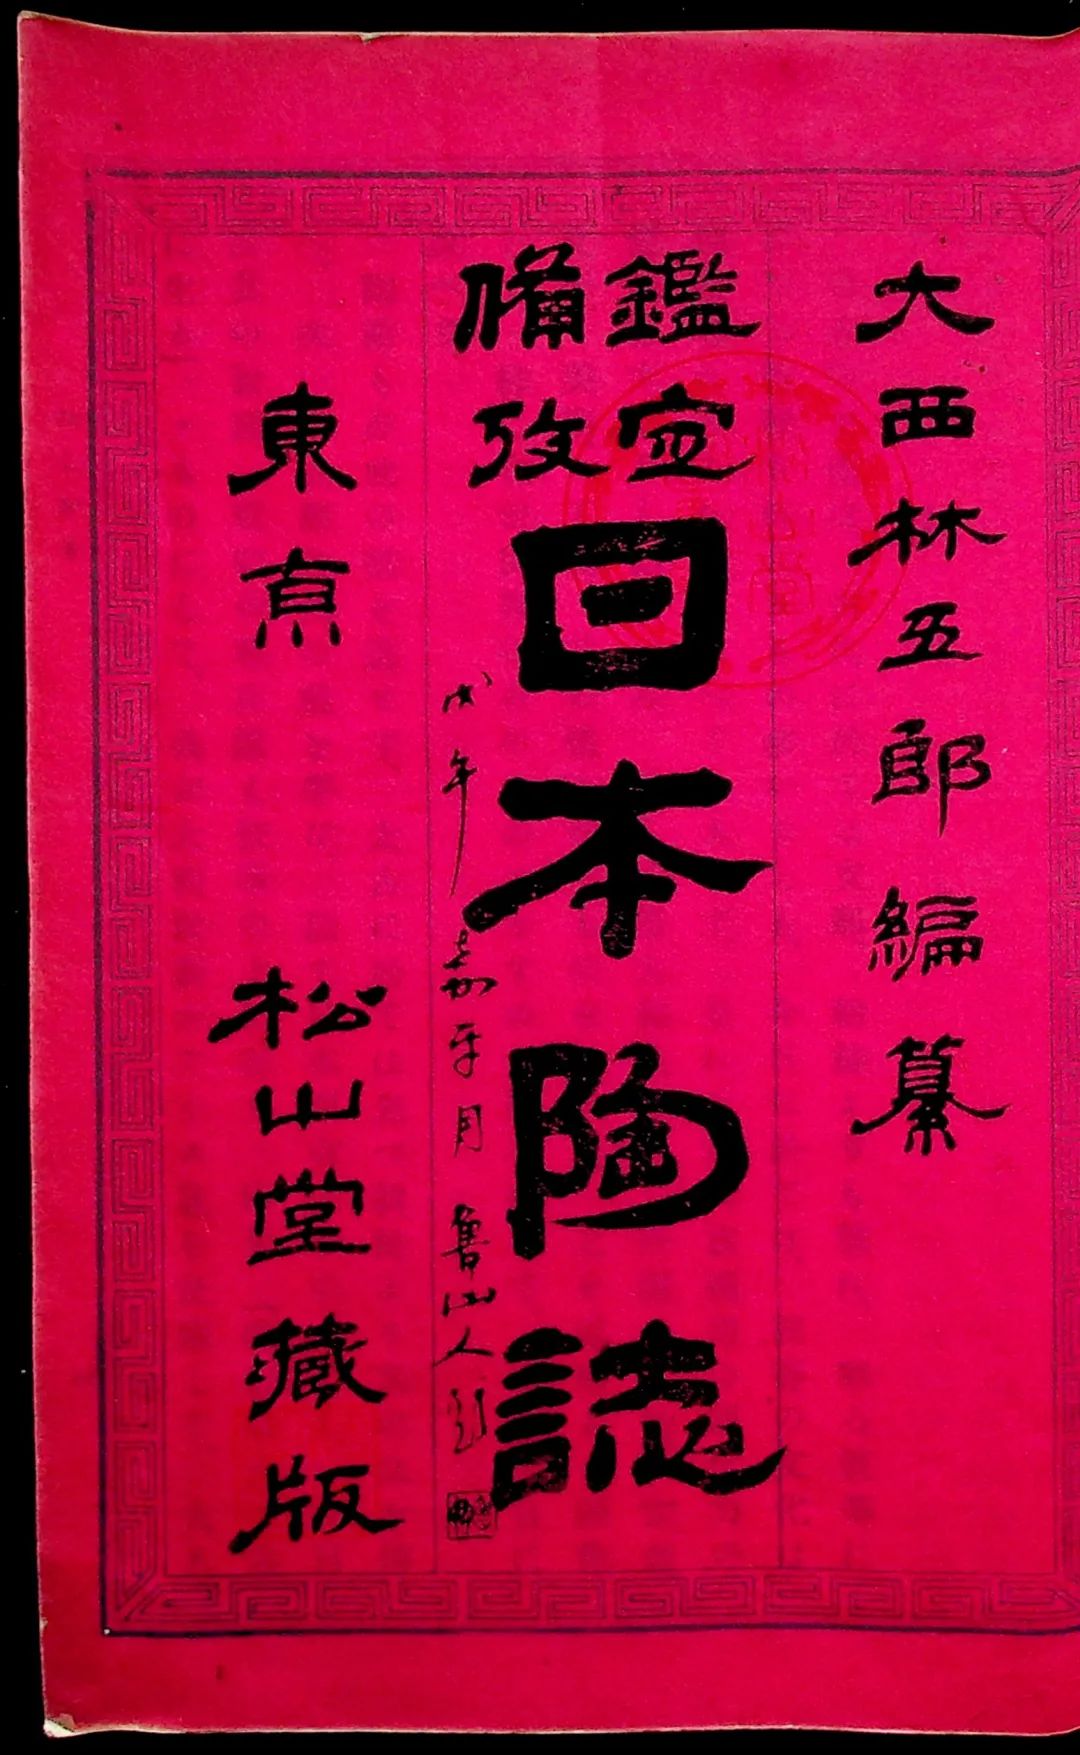 大西林五郎編纂
鑑定
備攷
日本陶誌
戊午嘉平月 魯山人題
東亰 松山堂藏版